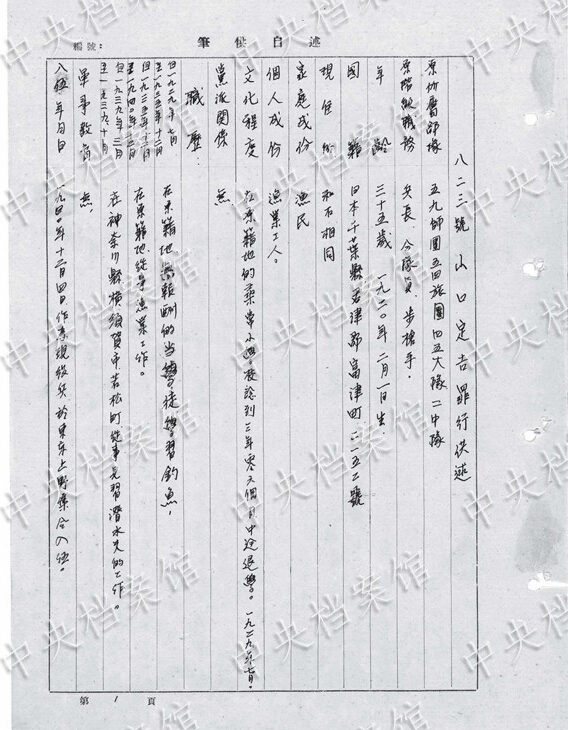 述自供筆
編號：
八二三號 山口定吉罪行供述
原坊屬部隊 五九師團五四旅團四五大隊二中隊
原階級職務 兵長、分隊員、步槍手。
年齡 三十五歲 一九二〇年二月一日生.
國籍 日本千葉縣君津郡富津町二一五二號
現住所 和右相同
家庭成份 漁民
個人成份 漁業工人。
文化程度 在原籍地的尋常小學校唸到三年零六個月中途退學。一九二九年七月.
黨派關係 無
職歷：
自一九二九年七月
至一九三五年十二月 在原籍地無報酬的當學徒學習釣魚，
在原籍地從事漁業工作。
在神奈川縣橫須賀市若松町從事見習潛水夫的工作。
軍事教育 無，
入伍年月日 一九四〇年十二月四日作為現役兵於東京上野集合入伍。
第 1 頁
中央档案馆